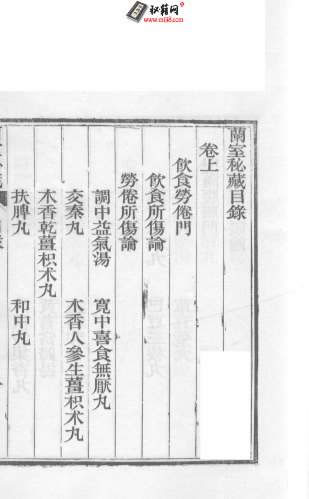 秘籍网
www.mi88.com
蘭室秘藏目錄
卷上
飲食勞倦門
飲食所傷論
勞倦所傷論
調中益氣湯 寬中喜食無厭丸
交泰丸 木香人參生薑枳术丸
木香乾薑枳术丸
扶脾丸 和中丸